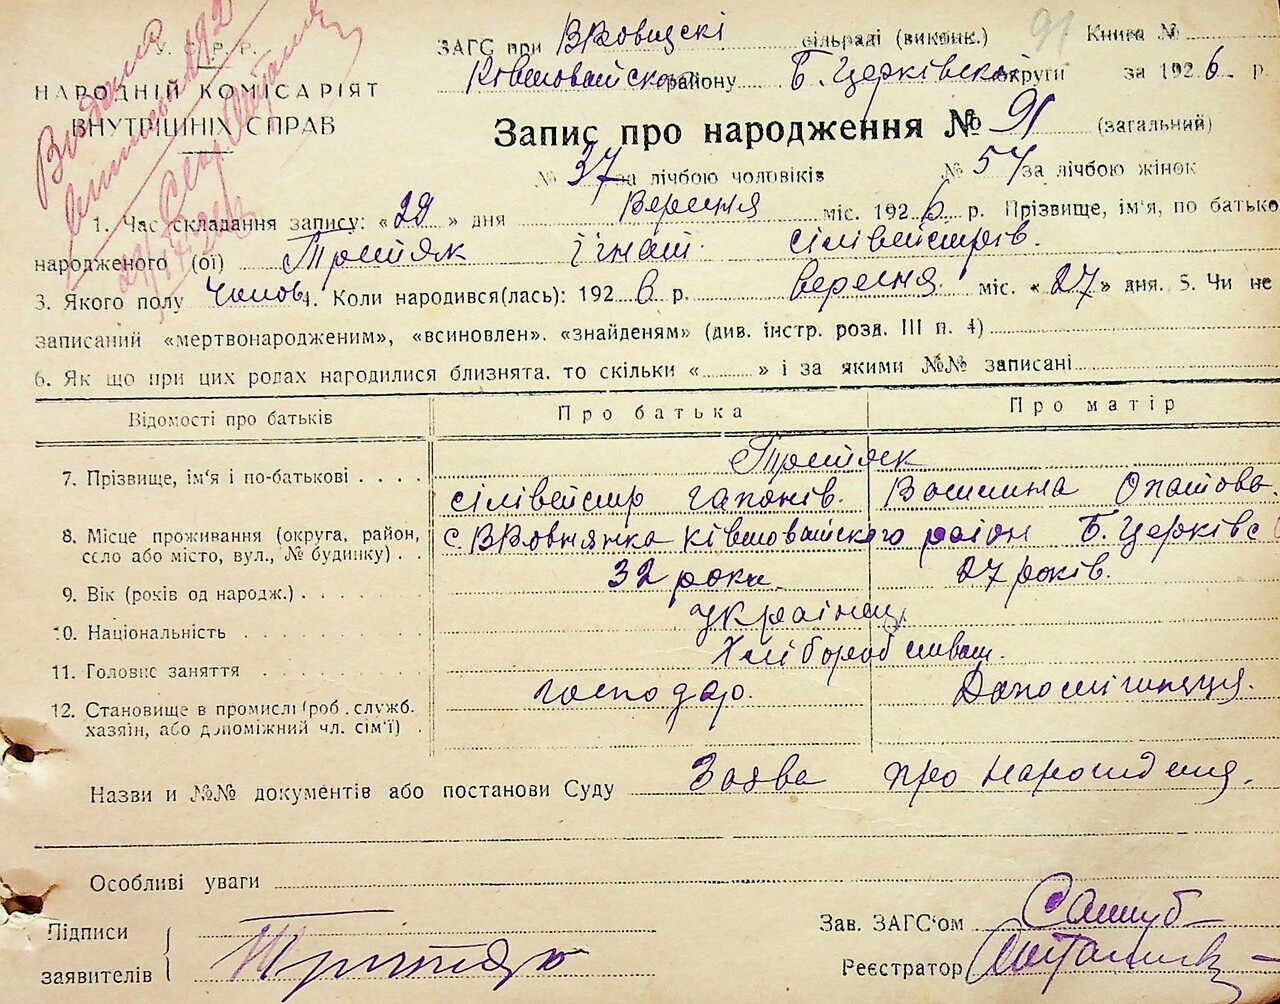 У. С. Р. Р.
НАРОДНІЙ КОМІСАРІЯТ
ВНУТРІШНІХ СПРАВ
Видана
ЗАГС при ВРовицскі сільраді (виконк.) 91 Книга №
району Б. Церківскої округи за 1926. р.
Запис про народження № 91 (загальний)
№ 37 за лічбою чоловіків № 54 за лічбою жінок
1. Час складання запису: «29» дня Вересня міс. 1926 р. Прізвище, ім'я, по батько
народженого (ої) Третяк ігнат сілівейстрів.
3. Якого полу Чолов. 4. Коли народився(лась): 1926 р. вересня міс. «27» дня. 5. Чи не
записаний «мертвонародженим», «всиновлен». «знайденям» (див. інстр. розд. III п. 4)
6. Як що при цих родах народилися близнята. то скільки « » і за якими №№ записані
Відомості про батьків Про батька Про матір
7. Прізвище, ім'я і по-батькові Третяк
сілівейстр гапонів. Васишина
8. Місце проживання (округа, район,
село або місто, вул., № будинку) с. район Б. Церківс
9. Вік (років од народж.) 32 роки. 27 років.
10. Національність українці
11. Головне заняття Хліборобство.
12. Становище в промислі (роб. служб. господар.
хазяїн, або допоміжний чл. сім'ї)
Назви и №№ документів або постанови Суду Заява про народження.
Особливі уваги
Підписи
заявителів Третяк
Зав. ЗАГС'ом
Реєстратор